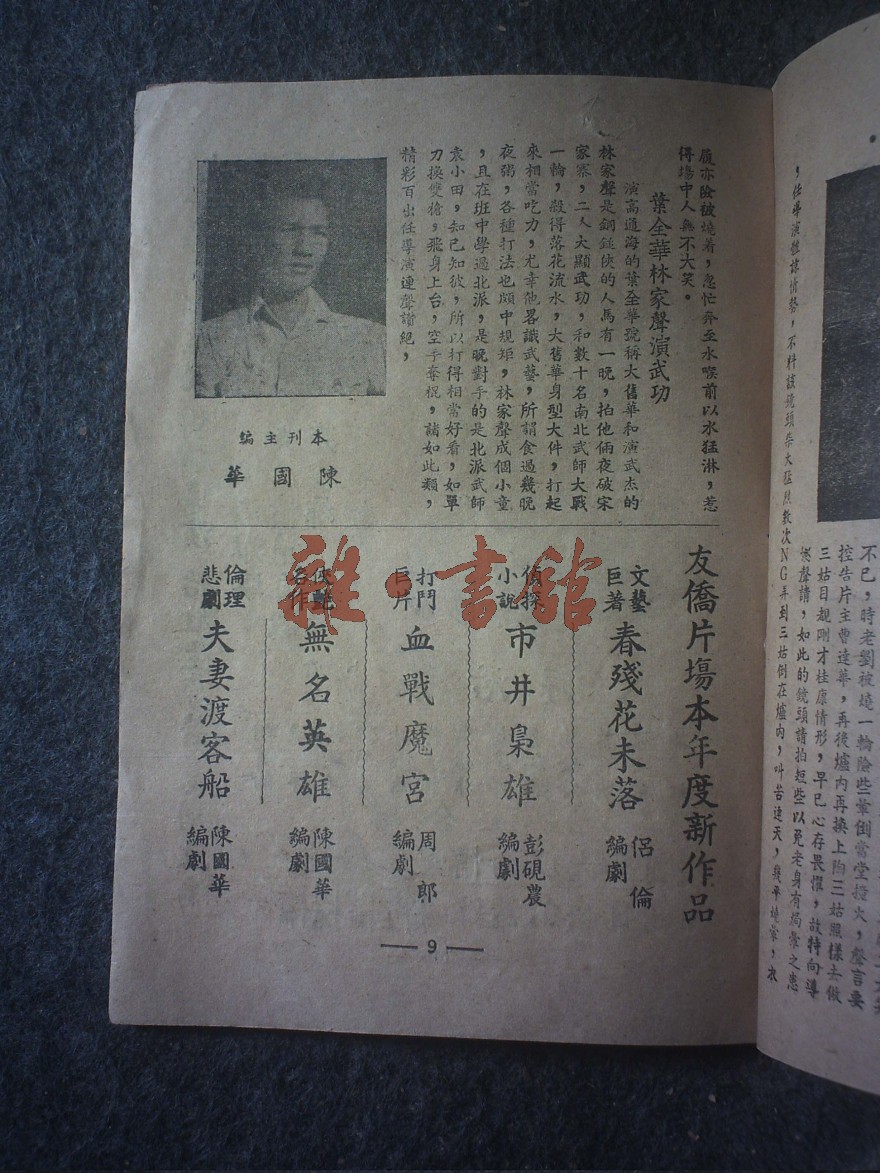 ，任導演雖諒情
不料該鏡頭柴火猛烈數次
NG弄到三姑倒在爐內，叫苦連天，幾乎燒暈，衣
履亦險被燒着，急忙奔至水喉前以水猛淋，惹
得場中人無不大笑。
葉全華林家聲演武功
演高通海的葉全華號稱大舊華和演武杰的
林家聲是銅鎚俠的人馬有一晚，拍他倆夜破宋
家寨，二人大顯武功，和數十名南北武師大戰
一輪，殺得落花流水，大舊華身型大件，打起
來相當吃力，尤幸他畧識武藝，所謂食過幾晚
夜粥，各種打法也頗中規矩，林家聲成個小童
，且在班中學過北派，是晚對手的是北派武師
袁小田，知己知彼，所以打得相當好看，如單
刀換雙槍，飛身上台，空手奪棍，諸如此類，
精彩百出任導演連聲讚絕，
本刊主編
陳國華
友僑片場本年度新作品
文藝巨著 春殘花未落 侶倫編劇
偵探小說 市井梟雄 彭硯農編劇
打鬥巨片 血戰魔宮 周郎編劇
俠艷名作 無名英雄 陳國華編劇
倫理悲劇 夫妻渡客船 陳國華編劇
9
不已，時老劉被燒一輪險些暈倒當堂撻火，聲言要
控告片主曹達華，再後爐內再換上陶三姑照樣去做
三姑目覩剛才桂康情形，早已心存畏懼，故特向導
聲請，如此的鏡頭請拍短些以免老身有焗暈之患
雜書館